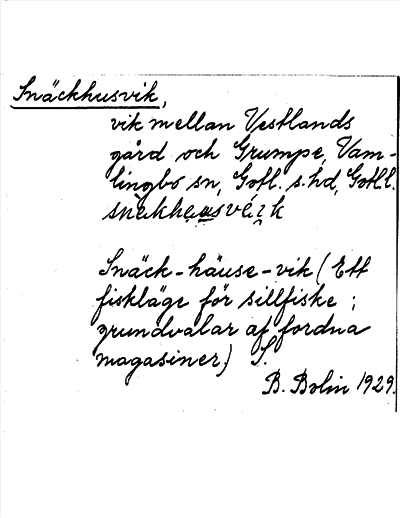 Snäckhusvik,
vik mellan Vestlands
gård och Grumpe, Vam-
lingbo sn, Gotl. s. hd, Gotl. l.
Snäck-häuse-vik (Ett
fiskläge för sillfiske;
grundvalar af fordna
magasiner) S.
B. Bolin 1929.